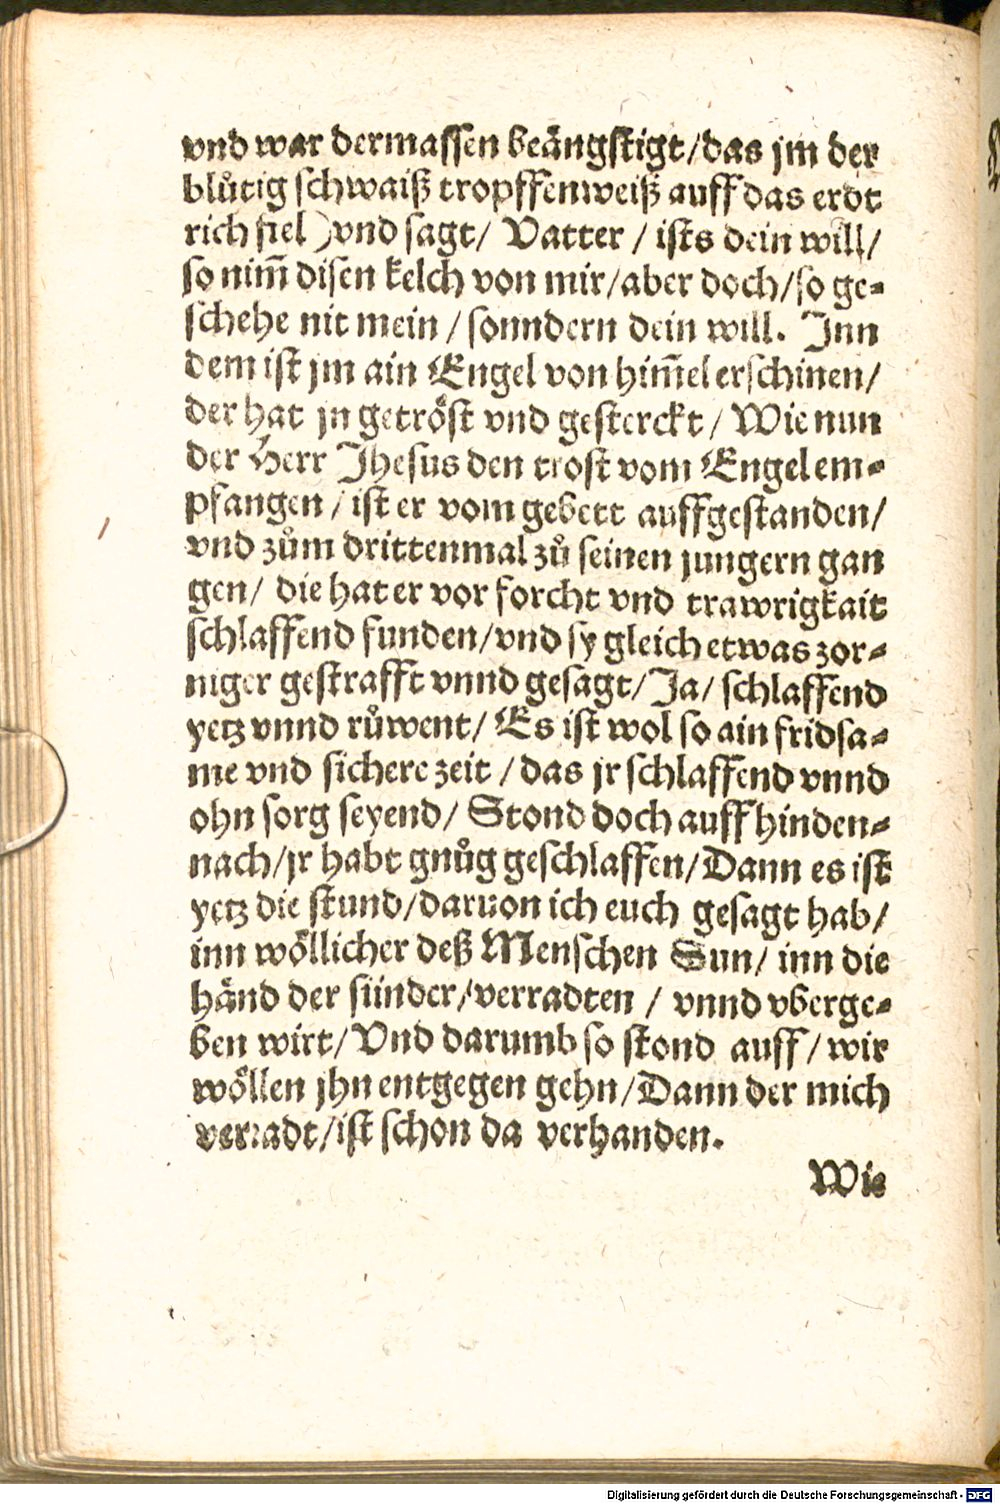 vnd war dermassen beängstigt/das jm der
blůtig schwaiß tropffenweiß auff das erdt
rich fiel) vnd sagt/ Vatter / ists dein will/
so nim̃ disen kelch von mir/aber doch/so ge-
schehe nit mein / sonndern dein will. Inn
dem ist jm ain Engel von him̃el erschinen/
der hat jn getröst vnd gesterckt / Wie nun
der Herr Jhesus den trost vom Engel em-
pfangen / ist er vom gebett auffgestanden/
vnd zům drittenmal zů seinen jungern gan
gen/ die hat er vor forcht vnd trawrigkait
schlaffend funden/vnd sy gleich etwas zor-
niger gestrafft vnnd gesagt/Ja/ schlaffend
yetz vnnd růwent/ Es ist wol so ain fridsa-
me vnd sichere zeit /das jr schlaffend vnnd
ohn sorg seyend/ Stond doch auff hinden-
nach/jr habt gnůg geschlaffen/Dann es ist
yetz die stund/daruon ich euch gesagt hab/
inn wöllicher deß Menschen Sun/ inn die
händ der sünder/verradten / vnnd vberge-
ben wirt/Vnd darumb so stond auff/wir
wöllen jhn entgegen gehn/Dann der mich
verradt/ist schon da verhanden.
Wie
Digitalisierung gefördert durch die Deutsche Forschungsgemeinschaft - DFG